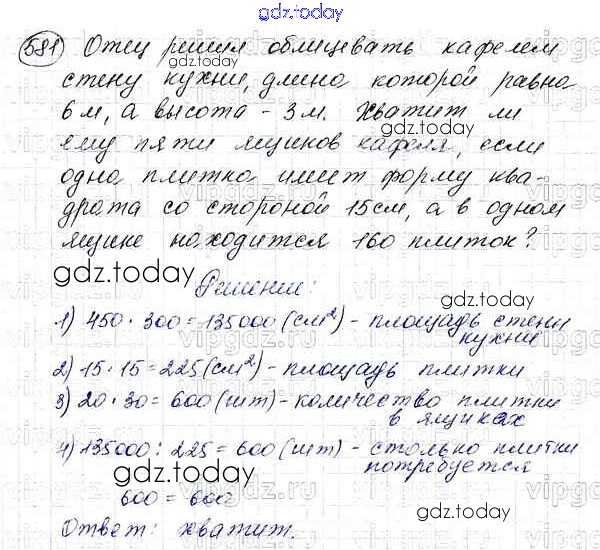 gdz.today
581 Отец решил облицевать кафелем
стену кухни, длина которой равна
6 м, а высота - 3 м. Хватит ли
gdz.today
ему пяти ящиков кафеля, если
одна плитка имеет форму ква-
драта со стороной 15 см, а в одном
ящике находится 160 плиток?
gdz.today
Решение:
gdz.today
1) 450 · 300 = 135000 (см²) - площадь стены
кухни
2) 15 · 15 = 225 (см²) - площадь плитки
3) 20 · 30 = 600 (шт) - количество плитки
в ящиках
4) 135000 : 225 = 600 (шт) - столько плитки
потребуется
gdz.today
600 = 600
gdz.today
Ответ: хватит.